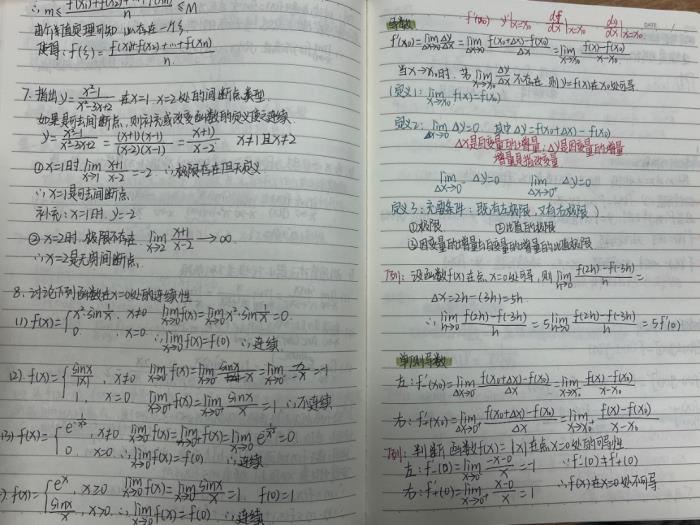 ∴ m≤ f(x₁)+f(x₂)+…+f(xn)/n ≤M
由介值定理可知 必存在一个ξ
使得: f(ξ) = f(x₁)+f(x₂)+…+f(xn)/n
7. 指出 y= x²-1/x²-3x+2 在x=1, x=2处的间断点类型
如果是可去间断点, 则补充或改变函数的定义使之连续
y= x²-1/x²-3x+2 = (x+1)(x-1)/(x-2)(x-1) = (x+1)/x-2 x≠1且x≠2
① x=1时 lim x→1 x+1/x-2 = -2 ∴极限存在但无定义
∴x=1是可去间断点.
补充: x=1时, y=-2
② x=2时, 极限不存在 lim x→2 x+1/x-2 → ∞
∴x=2是无穷间断点.
8. 讨论下列函数在x=0处的连续性
(1) f(x)={ x²·sin 1/x, x≠0 lim x→0 f(x)=lim x→0 x²·sin 1/x =0.
0. x=0 ∴lim x→0 f(x)=f(0) ∴连续
(2). f(x)={ sinx/|x|, x≠0 lim x→0⁻ f(x)=lim x→0⁻ sinx/-x = lim x→0⁻ x/-x =-1
1, x=0 lim x→0⁺ f(x)=lim x→0⁺ sinx/x =1 ∴不连续
(3) f(x)={ e^(-1/x²), x≠0 lim x→0 f(x)= =0
0. x=0 ∴lim x→0 f(x)=f(0) ∴连续
f(x)={ eˣ, x≥0 lim f(x)=lim sinx/x =1. f(0)=1
sinx/x, ∴lim f(x)=f(0) ∴连续
导数 f'(x₀) y'|x=x₀ df/dx|x=x₀ dy/dx|x=x₀
f'(x₀)=lim Δx→0 Δy/Δx =lim Δx→0 f(x₀+Δx)-f(x₀)/Δx =lim x→x₀ f(x)-f(x₀)/x-x₀
当x→x₀时, 若 lim Δx→0 Δy/Δx 不存在, 则y=f(x)在x₀处不可导
定义1: lim x→x₀ f(x)=f(x₀)
定义2: lim Δx→0 Δy=0 其中Δy=f(x₀+Δx)-f(x₀)
Δx是自变量的增量, Δy是因变量的增量
增量是指改变量
lim Δx→0⁻ Δy=0 lim Δx→0⁺ Δy=0
定义3: 充要条件: 既有左极限, 又有右极限)
①极限 ②比值的极限
③因变量的增量与自变量的增量的比值极限
例: 设函数f(x)在点x=0处可导, 则 lim h→0 f(2h)-f(-3h)/h =
Δx=2h-(3h)=5h.
∴lim h→0 f(2h)-f(-3h)/h = 5lim h→0 f(2h)-f(-3h)/h =5f'(0)
单侧导数
左: f'₋(x₀)=lim Δx→0⁻ f(x₀+Δx)-f(x₀)/Δx =lim x→x₀⁻ f(x)-f(x₀)/x-x₀
右: f'₊(x₀)=lim Δx→0⁺ f(x₀+Δx)-f(x₀)/Δx =lim x→x₀⁺ f(x)-f(x₀)/x-x₀
例: 判断函数f(x)=|x|在点x=0处的可导性
左: f'₋(0)=lim x→0⁻ -x-0/x =-1 ∵f'₋(0)≠f'₊(0)
右: f'₊(0)=lim x→0⁺ x-0/x =1 ∴f(x)在x=0处不可导